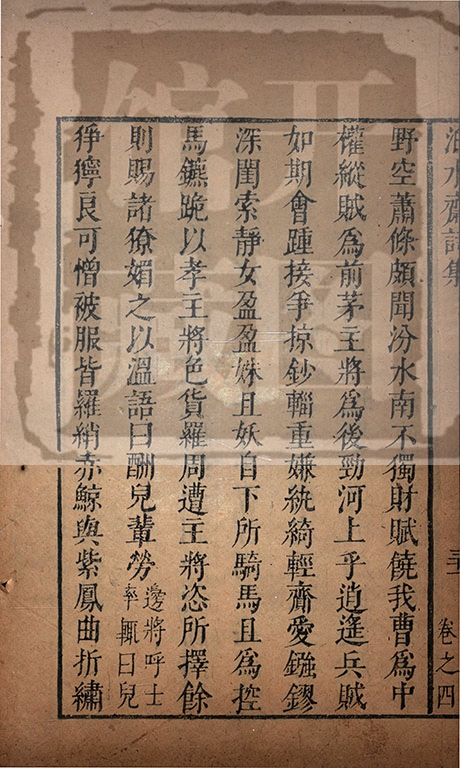 油水齋詩集
卷之四
野空蕭條頗聞汾水南不獨財賦饒我曹爲中
權縱賊爲前茅主將爲後勁河上乎逍遙兵賊
如期會踵接爭掠鈔輜重嫌紈綺輕齎愛鏹鏐
深閨索靜女盈盈姝且妖自下所騎馬且爲控
馬鑣跪以奉主將色貨羅周遭主將恣所擇餘
則賜諸獠媚之以溫語曰酬兒輩勞邊將呼士
率輒曰兒
猙獰良可憎被服皆羅綃赤鯨與紫鳳曲折繡